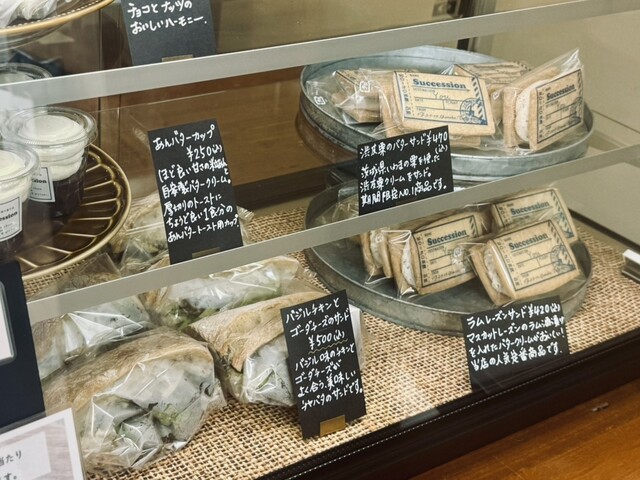 チョコとナッツの
おいしいハーモニー.
あんバターカップ
¥250(込)
ほど良い甘さの粒あん
自家製バタークリーム。
厚切りのトーストに
ちょうど良い1食分の
あんバタートースト用カップ
渋皮栗のバターサンド¥470
(込)
茨城県いわまの栗を使った
渋皮栗クリームをサンド。
期間限定人気No.1商品です。
Succession
You
Succession
Succession
Succession
Succession
バジルチキンと
ゴーダチーズのサンド
¥500(込)
バジル味のチキンと
ゴーダチーズが
よく合う、美味しい
チャバタのサンドです。
ラムレーズンサンド¥420(込)
マスカットレーズンのラム酒漬け
を入れたバタークリームがおいしい
当店の人気定番商品です。
当たり
す。